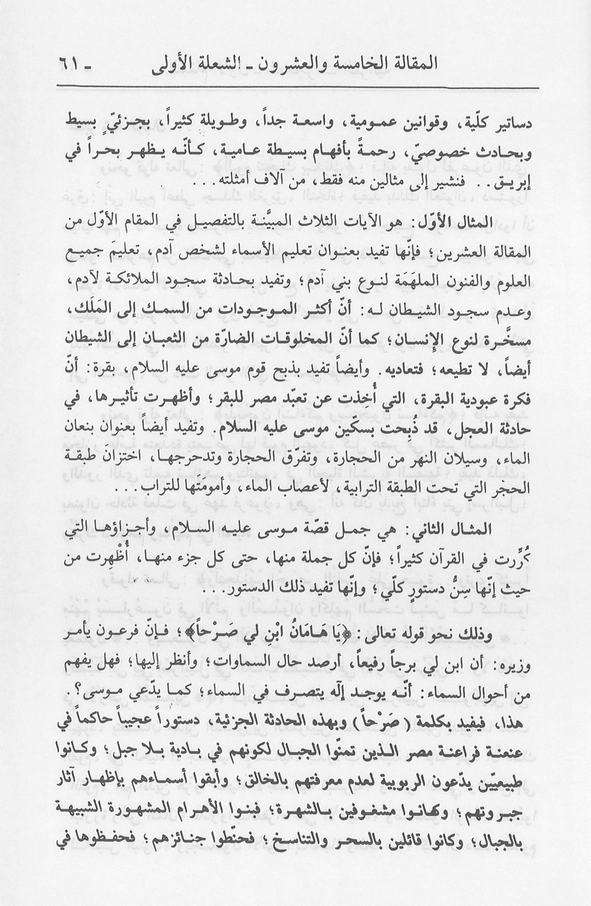 المقالة الخامسة والعشرون ـ الشعلة الأولى ـ ٦١
دساتير كلّية، وقوانين عمومية، واسعة جداً، وطويلة كثيراً، بجزئيّ بسيط
وبحادث خصوصيّ، رحمةً بأفهام بسيطة عامية، كأنّه يظهر بحراً في
إبريق.. فنشير إلى مثالين منه فقط، من آلاف أمثلته...
المثال الأوّل: هو الآيات الثلاث المبيَّنة بالتفصيل في المقام الأوّل من
المقالة العشرين؛ فإنّها تفيد بعنوان تعليم الأسماء لشخص آدم، تعليمَ جميع
العلوم والفنون الملهَمَة لنوع بني آدم؛ وتفيد بحادثة سجود الملائكة لآدم،
وعدم سجود الشيطان له: أنّ أكثر الموجودات من السمك إلى المَلَك،
مسخَّرة لنوع الإنسان؛ كما أنّ المخلوقات الضارّة من الثعبان إلى الشيطان
أيضاً، لا تطيعه؛ فتعاديه. وأيضاً تفيد بذبح قوم موسى عليه السلام، بقرة: أنّ
فكرة عبودية البقرة، التي أُخِذت عن تعبّد مصر للبقر؛ وأظهرت تأثيرها، في
حادثة العجل، قد ذُبِحت بسكّين موسى عليه السلام. وتفيد أيضاً بعنوان بنعان
الماء، وسيلان النهر من الحجارة، وتفرّق الحجارة وتدحرجها، اختزانَ طبقة
الحجر التي تحت الطبقة الترابية، لأعصاب الماء، وأمومَتَها للتراب...
المثال الثاني: هي جمل قصّة موسى عليه السلام، وأجزاؤها التي
كُرِّرت في القرآن كثيراً؛ فإنّ كل جملة منها، حتى كل جزء منها، أُظْهِرت من
حيث إنّها سِنُّ دستورٍ كلّي؛ وإنّها تفيد ذلك الدستور...
وذلك نحو قوله تعالى: ﴿يَا هَامَانُ ابْنِ لي صَرْحاً﴾؛ فإنّ فرعون يأمر
وزيره: أن ابن لي برجاً رفيعاً، أرصد حال السماوات؛ وأنظر إليها؛ فهل يفهم
من أحوال السماء: أنّه يوجد إلٰه يتصرف في السماء؛ كما يدّعي موسى؟.
هذا، فيفيد بكلمة (صَرْحاً) وبهذه الحادثة الجزئية، دستوراً عجيباً حاكماً في
عنعنة فراعنة مصر الذين تمنّوا الجبال لكونهم في بادية بلا جبل؛ وكانوا
طبيعيّين يدّعون الربوبية لعدم معرفتهم بالخالق؛ وأبقوا أسماءهم بإظهار آثار
جبروتهم؛ وكانوا مشغوفين بالشهرة؛ فبنوا الأهرام المشهورة الشبيهة
بالجبال؛ وكانوا قائلين بالسحر والتناسخ؛ فحنّطوا جنائزهم؛ فحفظوها في